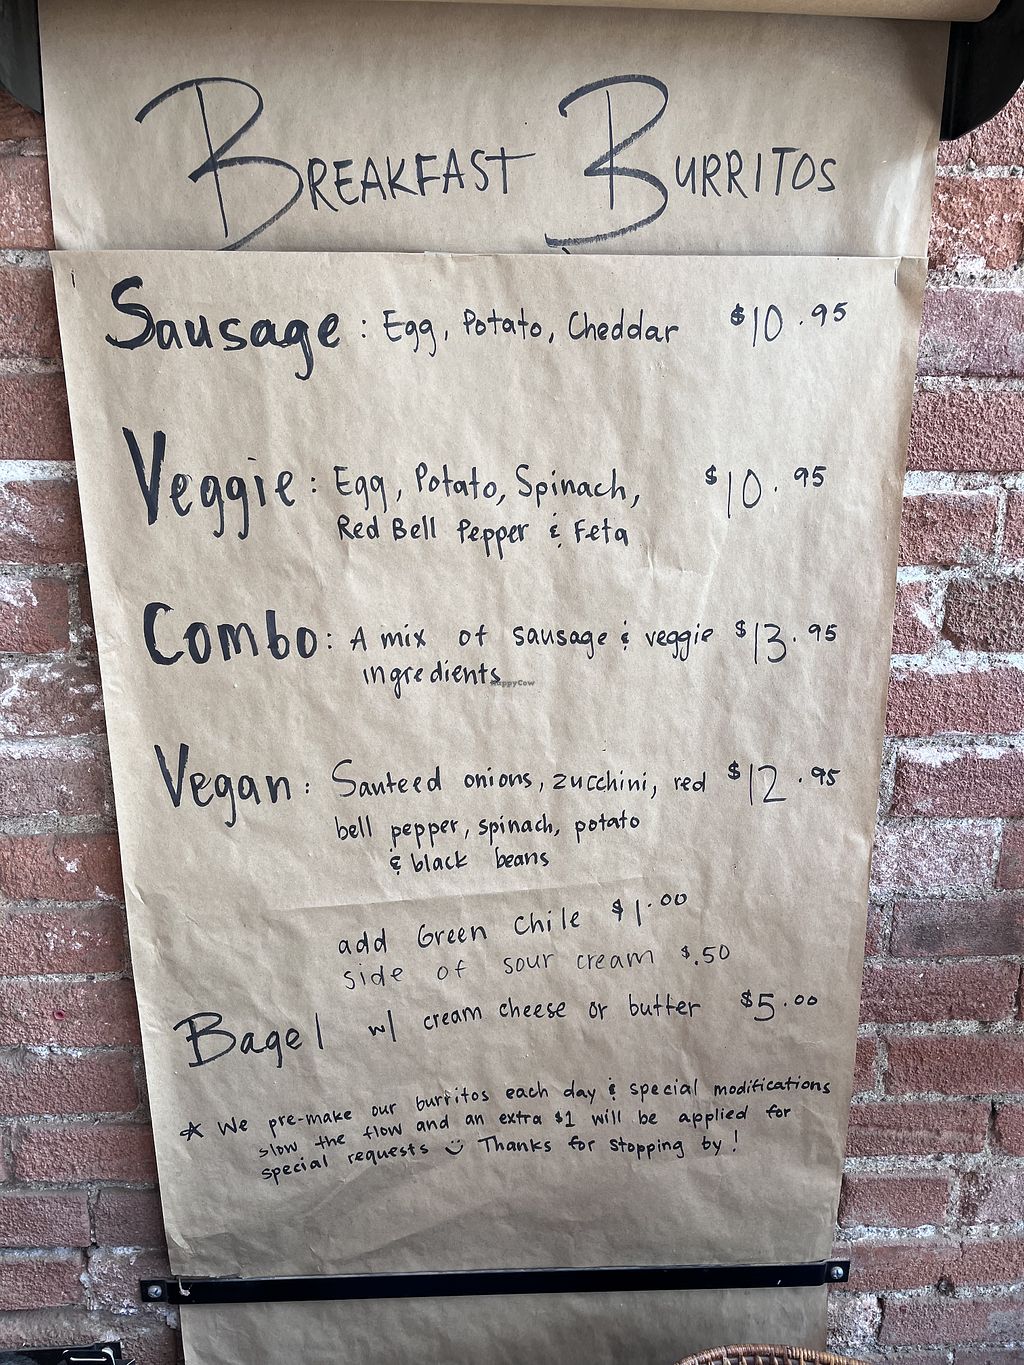 BREAKFAST BURRITOS
Sausage: Egg, Potato, Cheddar $10.95
Veggie: Egg, Potato, Spinach, $10.95
Red Bell Pepper & Feta
Combo: A mix of sausage & veggie $13.95
ingredients
HappyCow
Vegan: Sauteed onions, zucchini, red $12.95
bell pepper, spinach, potato
& black beans
add Green Chile $1.00
side of sour cream $.50
Bagel w/ cream cheese or butter $5.00
☆ We pre-make our burritos each day & special modifications
slow the flow and an extra $1 will be applied for
special requests ☺ Thanks for stopping by!